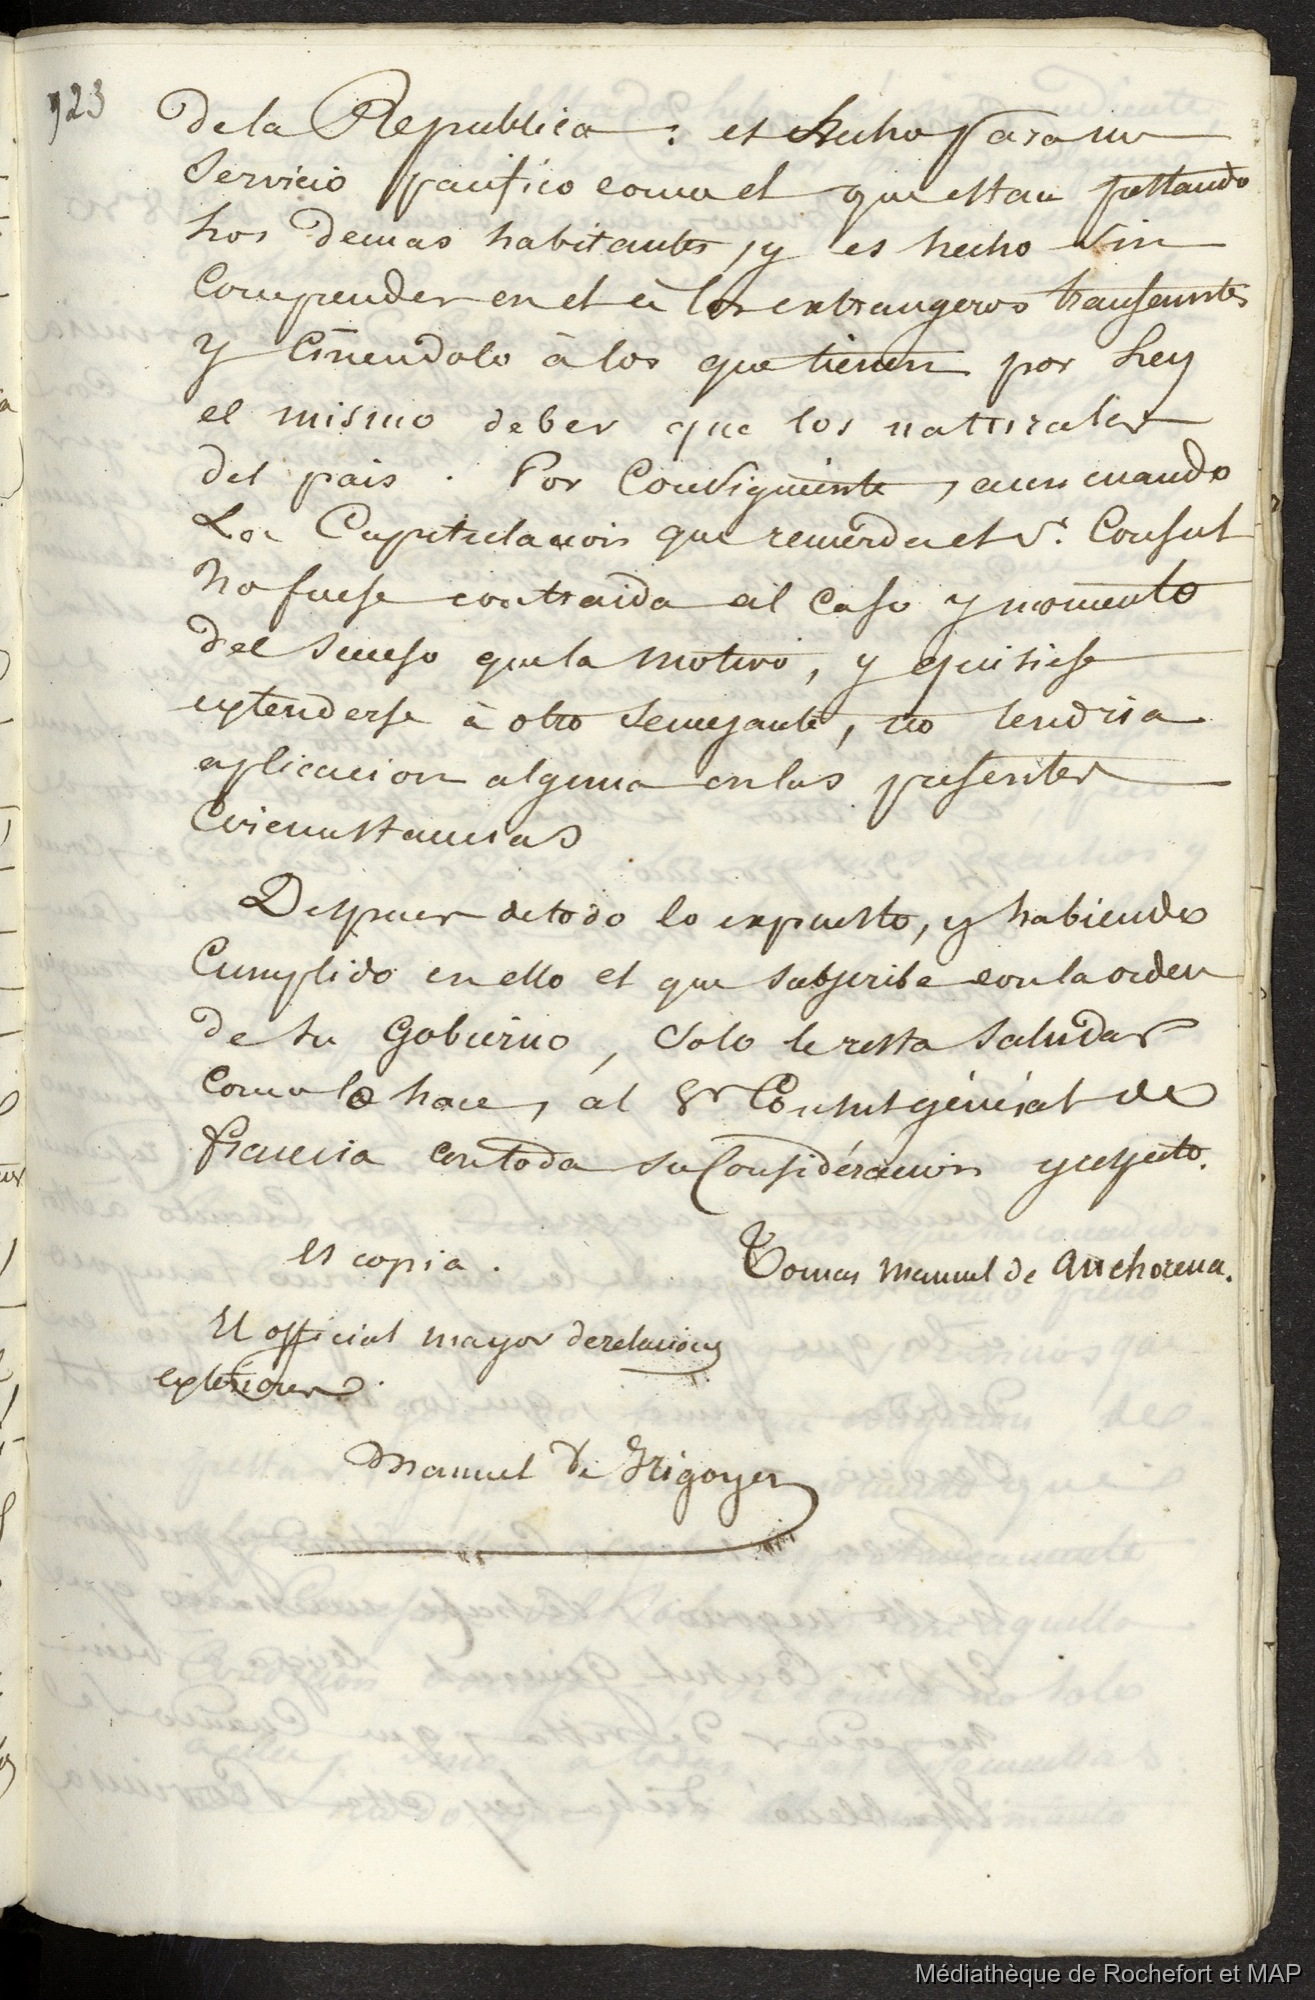 923
de la Republica: es hecho para un
Servicio pacifico como el que estan prestando
los demas habitantes, y es hecho sin
Comprender en el à los extrangeros transeuntes
y Ciñendolo à los que tienen por Ley
el mismo deber que los naturales
del pais. Por Consiguiente, aun cuando
La Capitulacion que remerda el Sr. Consul
no fuese contraida al Caso y momento
del Suceso que la motivó, y quisiese
extenderse à otro Semejante, no tendria
aplicacion alguna en las presentes
Circunstancias
Despues de todo lo expuesto, y habiendo
Cumplido en ello el que subscribe con la orden
de su Gobierno, Solo le resta Saludar
Como lo hace, al Sr Consul général de
francia con toda su Considéracion y respecto.
Es copia.
Tomas Manuel de Anchorena.
El official mayor de relaciones
exteriores.
Manuel de Irigoyen
Médiathèque de Rochefort et MAP